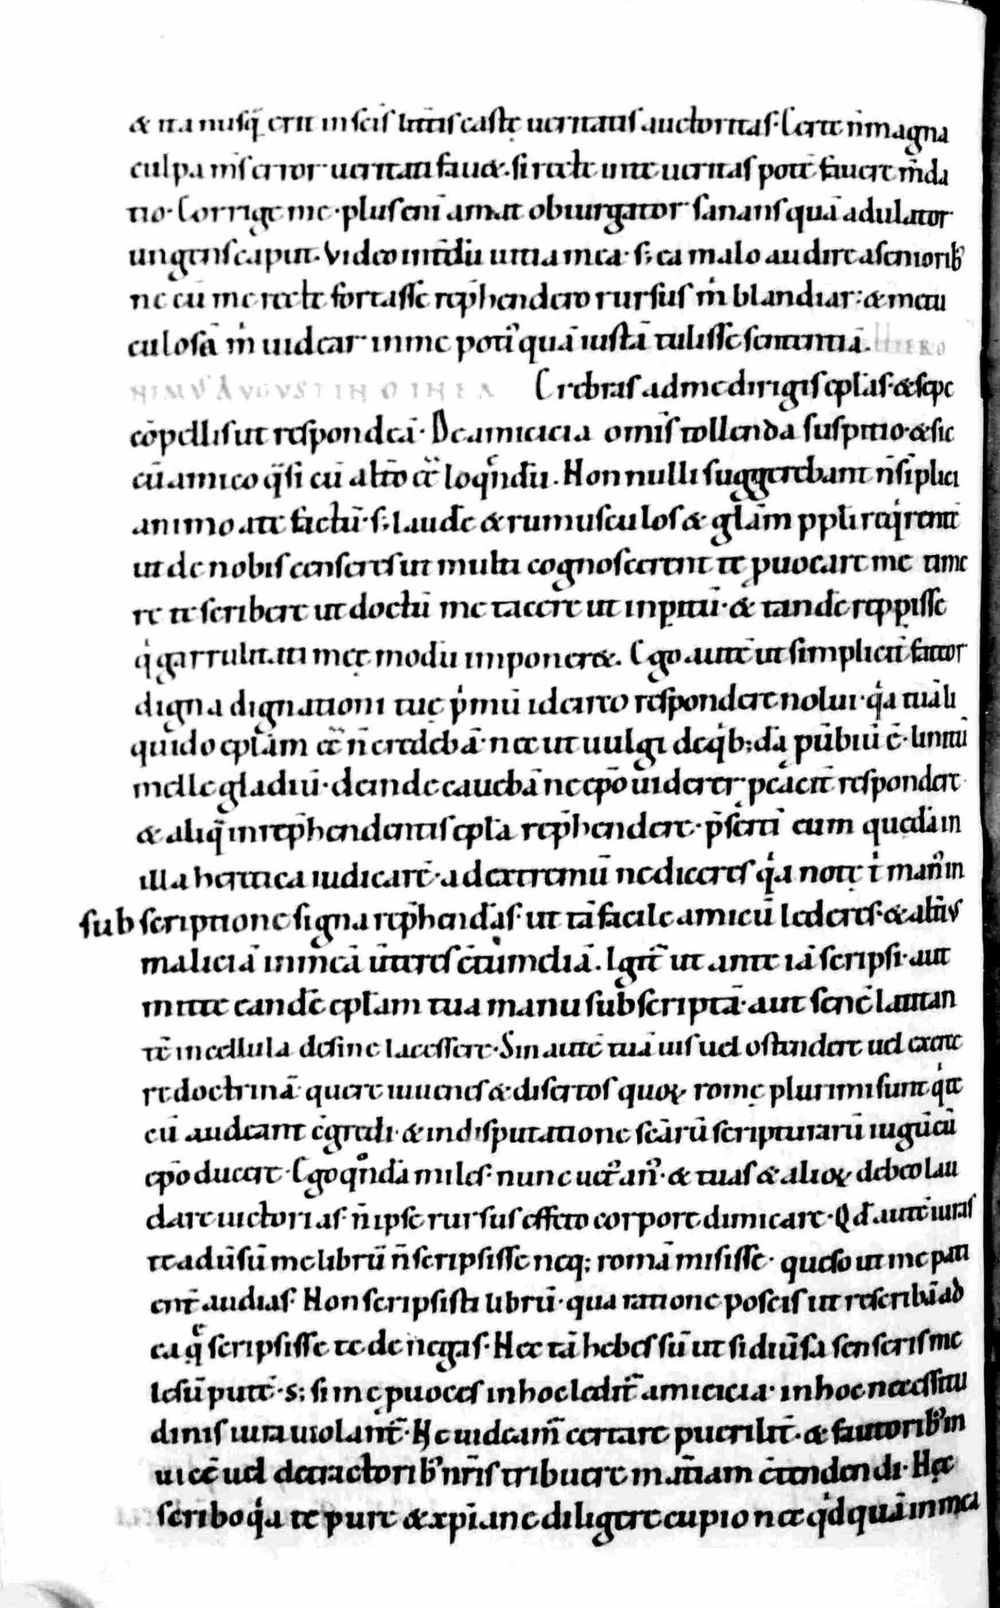 & ita nusq̄ erit in scīs litt̄is castę ueritatis auctoritas. Certe n̄ magna
culpa m̄s error ueritati fau&. si recte in te ueritas potē fauere m̄da
tio. Corrige me. plus enī amat obiurgator sanans quā adulator
ungens caput. Video int̄dū uitia mea. s; ea malo audire a seniorib'
ne cū me recte fortasse rep̄hendero rursus m̍ blandiar: & metu
culosā m̍ uidear in me poti' quā iustā tulisse sententiā. HIERO
NIMVS AVGVSTINO IN EA Crebras ad me dirigis ep̄las. & sępe
cōpellis ut respondeā. De amicicia om̄is tollenda suspitio. & sic
cū amico q̄si cū alt̄o ēē loq̄ndū. Non nulli suggerebant n̄ sīplici
animo a te factū. s; laudē & rumusculos & gl̄am ppl̄i req̍rentē
ut de nobis censeres ut multi cognoscerent te ꝓuocare me time
re te scribere ut doctū me tacere ut inp̱itū. & tandē repp̱isse
q̍ garrulitati meę modū imponer&. Ego autē ut simplicit̄ fateor
digna dignationi tuę p̍mū idcirco respondere nolui. q̍a tuā li
quido ep̄lam ēē n̄ credebā. nec ut uulgi de q̍b;dā ꝓuerbiū ē. linitū
melle gladiū. deinde cauebā ne ep̄o uiderer ꝓcacit̄ respondere
& aliq̄ in rep̄hendentis ep̄la rep̄hendere. p̄sertī cum quędam in
illa heretica iudicarē. ad extremū ne diceres q̍a notę t̍ man' in
subscriptione signa rep̄hendas. ut tā facile amicū lederes. & alt̄ius
maliciā in m̄eā ūteres cōtumeliā. Igit̄ ut ante iā scripsi. aut
mitte eandē ep̄lam tua manu subscriptā. aut senē latitan
tē in cellula desine lacessere. Sin autē tuā uis uel ostendere uel exerce
re doctrinā quere iuuenes & disertos quoꝝ romę plurimi sunt q̍ te
cū audeant c̄gredi. & in disputatione scārū scripturarū iugū cū
ep̄o ducere. Ego q̊ndā miles. nunc uet'an'. & tuas & alioꝝ debeo lau
dare uictorias. n̄ ipse rursus effeto corpore dimicare. Qd̄ autē iuras
te adūsū me librū n̄ scripsisse neq; romā misisse. queso ut me pati
ent̄ audias. Non scripsisti librū. qua ratione poscis ut rescribā ad
ea q̄ scripsisse te denegas. Nec tā hebes sū ut si diūsa senseris me
lesū putē. s; si me ꝓuoces in hoc ledit̄ amicicia. in hoc necessitu
dinis iura uiolant̄. Ne uideam̄ certare puerilit̄. & fautorib' in
uicē uel detractorib' nr̄is tribuere mat̄iam c̄tendendi. Hęc
scribo q̍a te pure & xp̄iane diligere cupio nec q̍dquā in mea